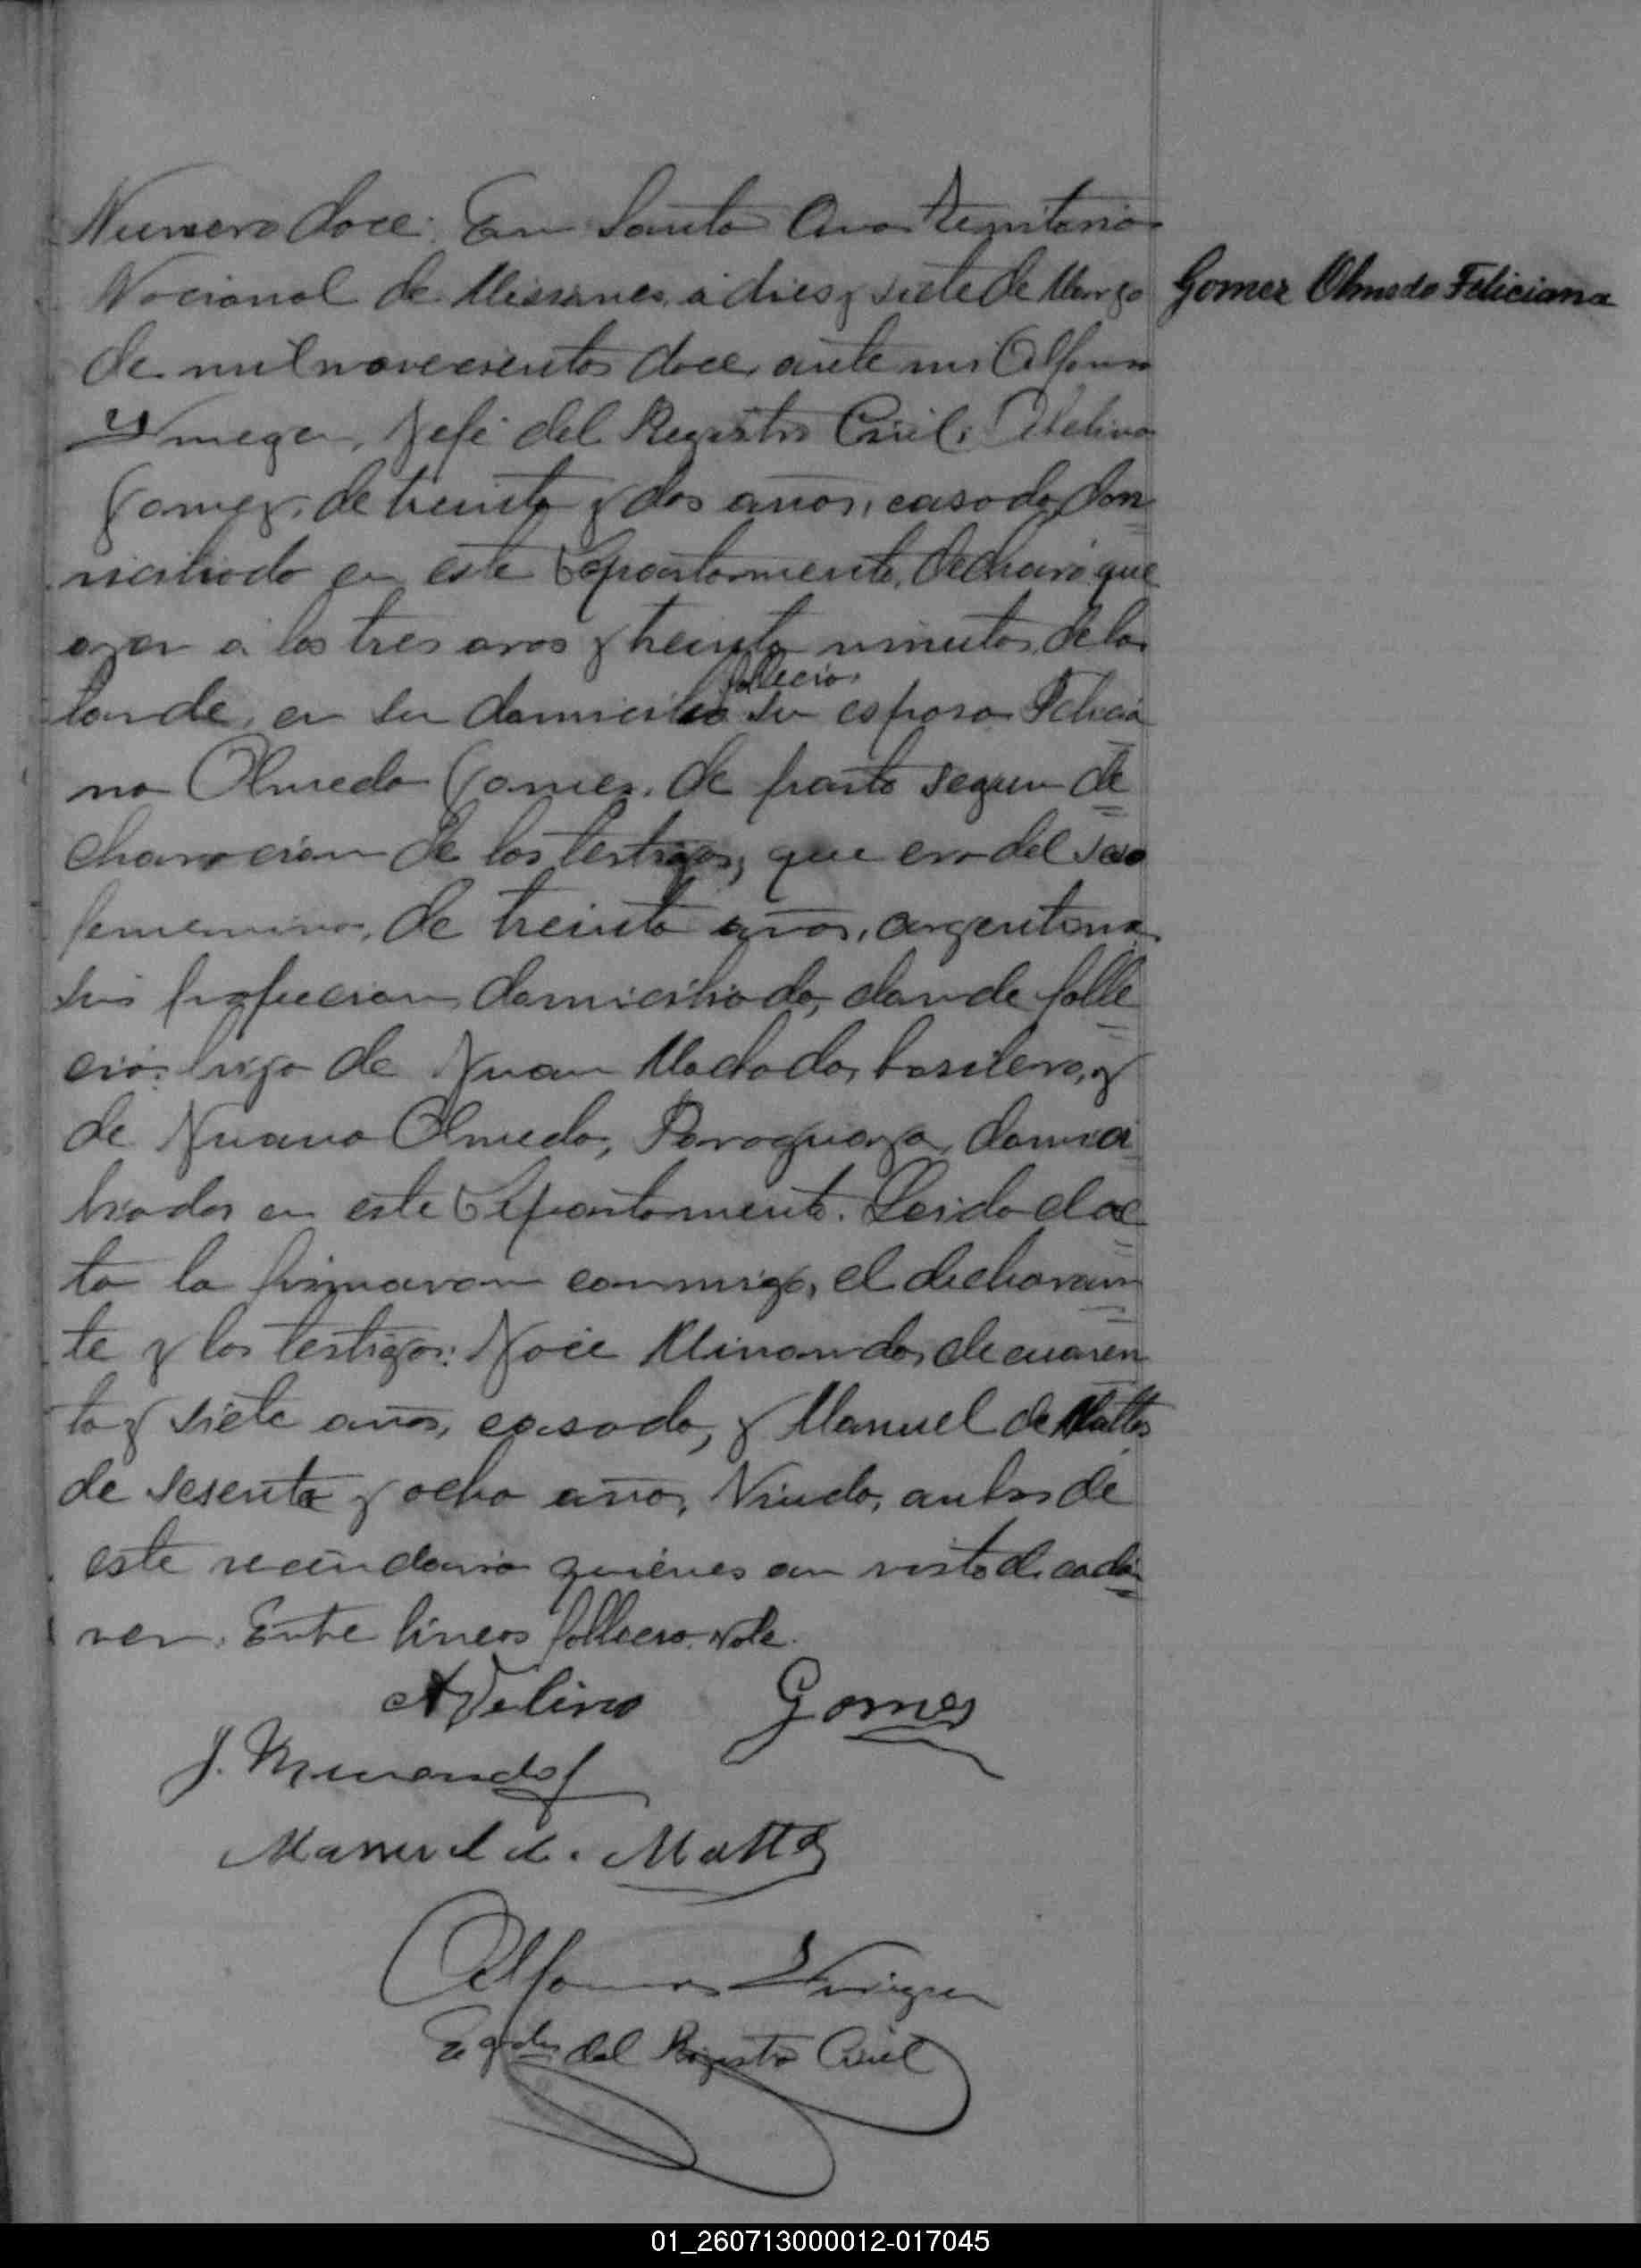 Numero doce: En Santa Ana Territorio
Nacional de Misiones, a dies y siete de Março
Gomez Olmedo Feliciana
de mil novecientos doce, ante mi Alfonso
Jefe del Registro Civil, Abelino
Gomez, de treinta y dos años, casado, dom
iciliado en este Departamento, declaró que
ayer a las tres oras y treinta minutos de la
tarde, en su domicilio fallecio su esposa Felicia
na Olmedo Gomes, de parto segun de
claracion de los testigos, que era del sexo
femenino, de treinta años, argentina
sin profecion, domiciliada, donde falle
ció, hija de Juan Machado, brasilero, y
de Juana Olmedo, Paraguaya, domici
liados en este Departamento. Leida el ac
ta la firmaron conmigo, el declaran
te y los testigos: José Miranda, de cuaren
ta y siete años, casado, y Manuel de Mattos
de sesenta y ocho años, Viudo, anbos de
este vecindario quienes an visto el cadá
ver. Entre lineas fallecio. Vale.
Avelino Gomes
J. Miranda
Manuel de Mattos
Alfonso
Egdo del Registro Civil
01_260713000012-017045